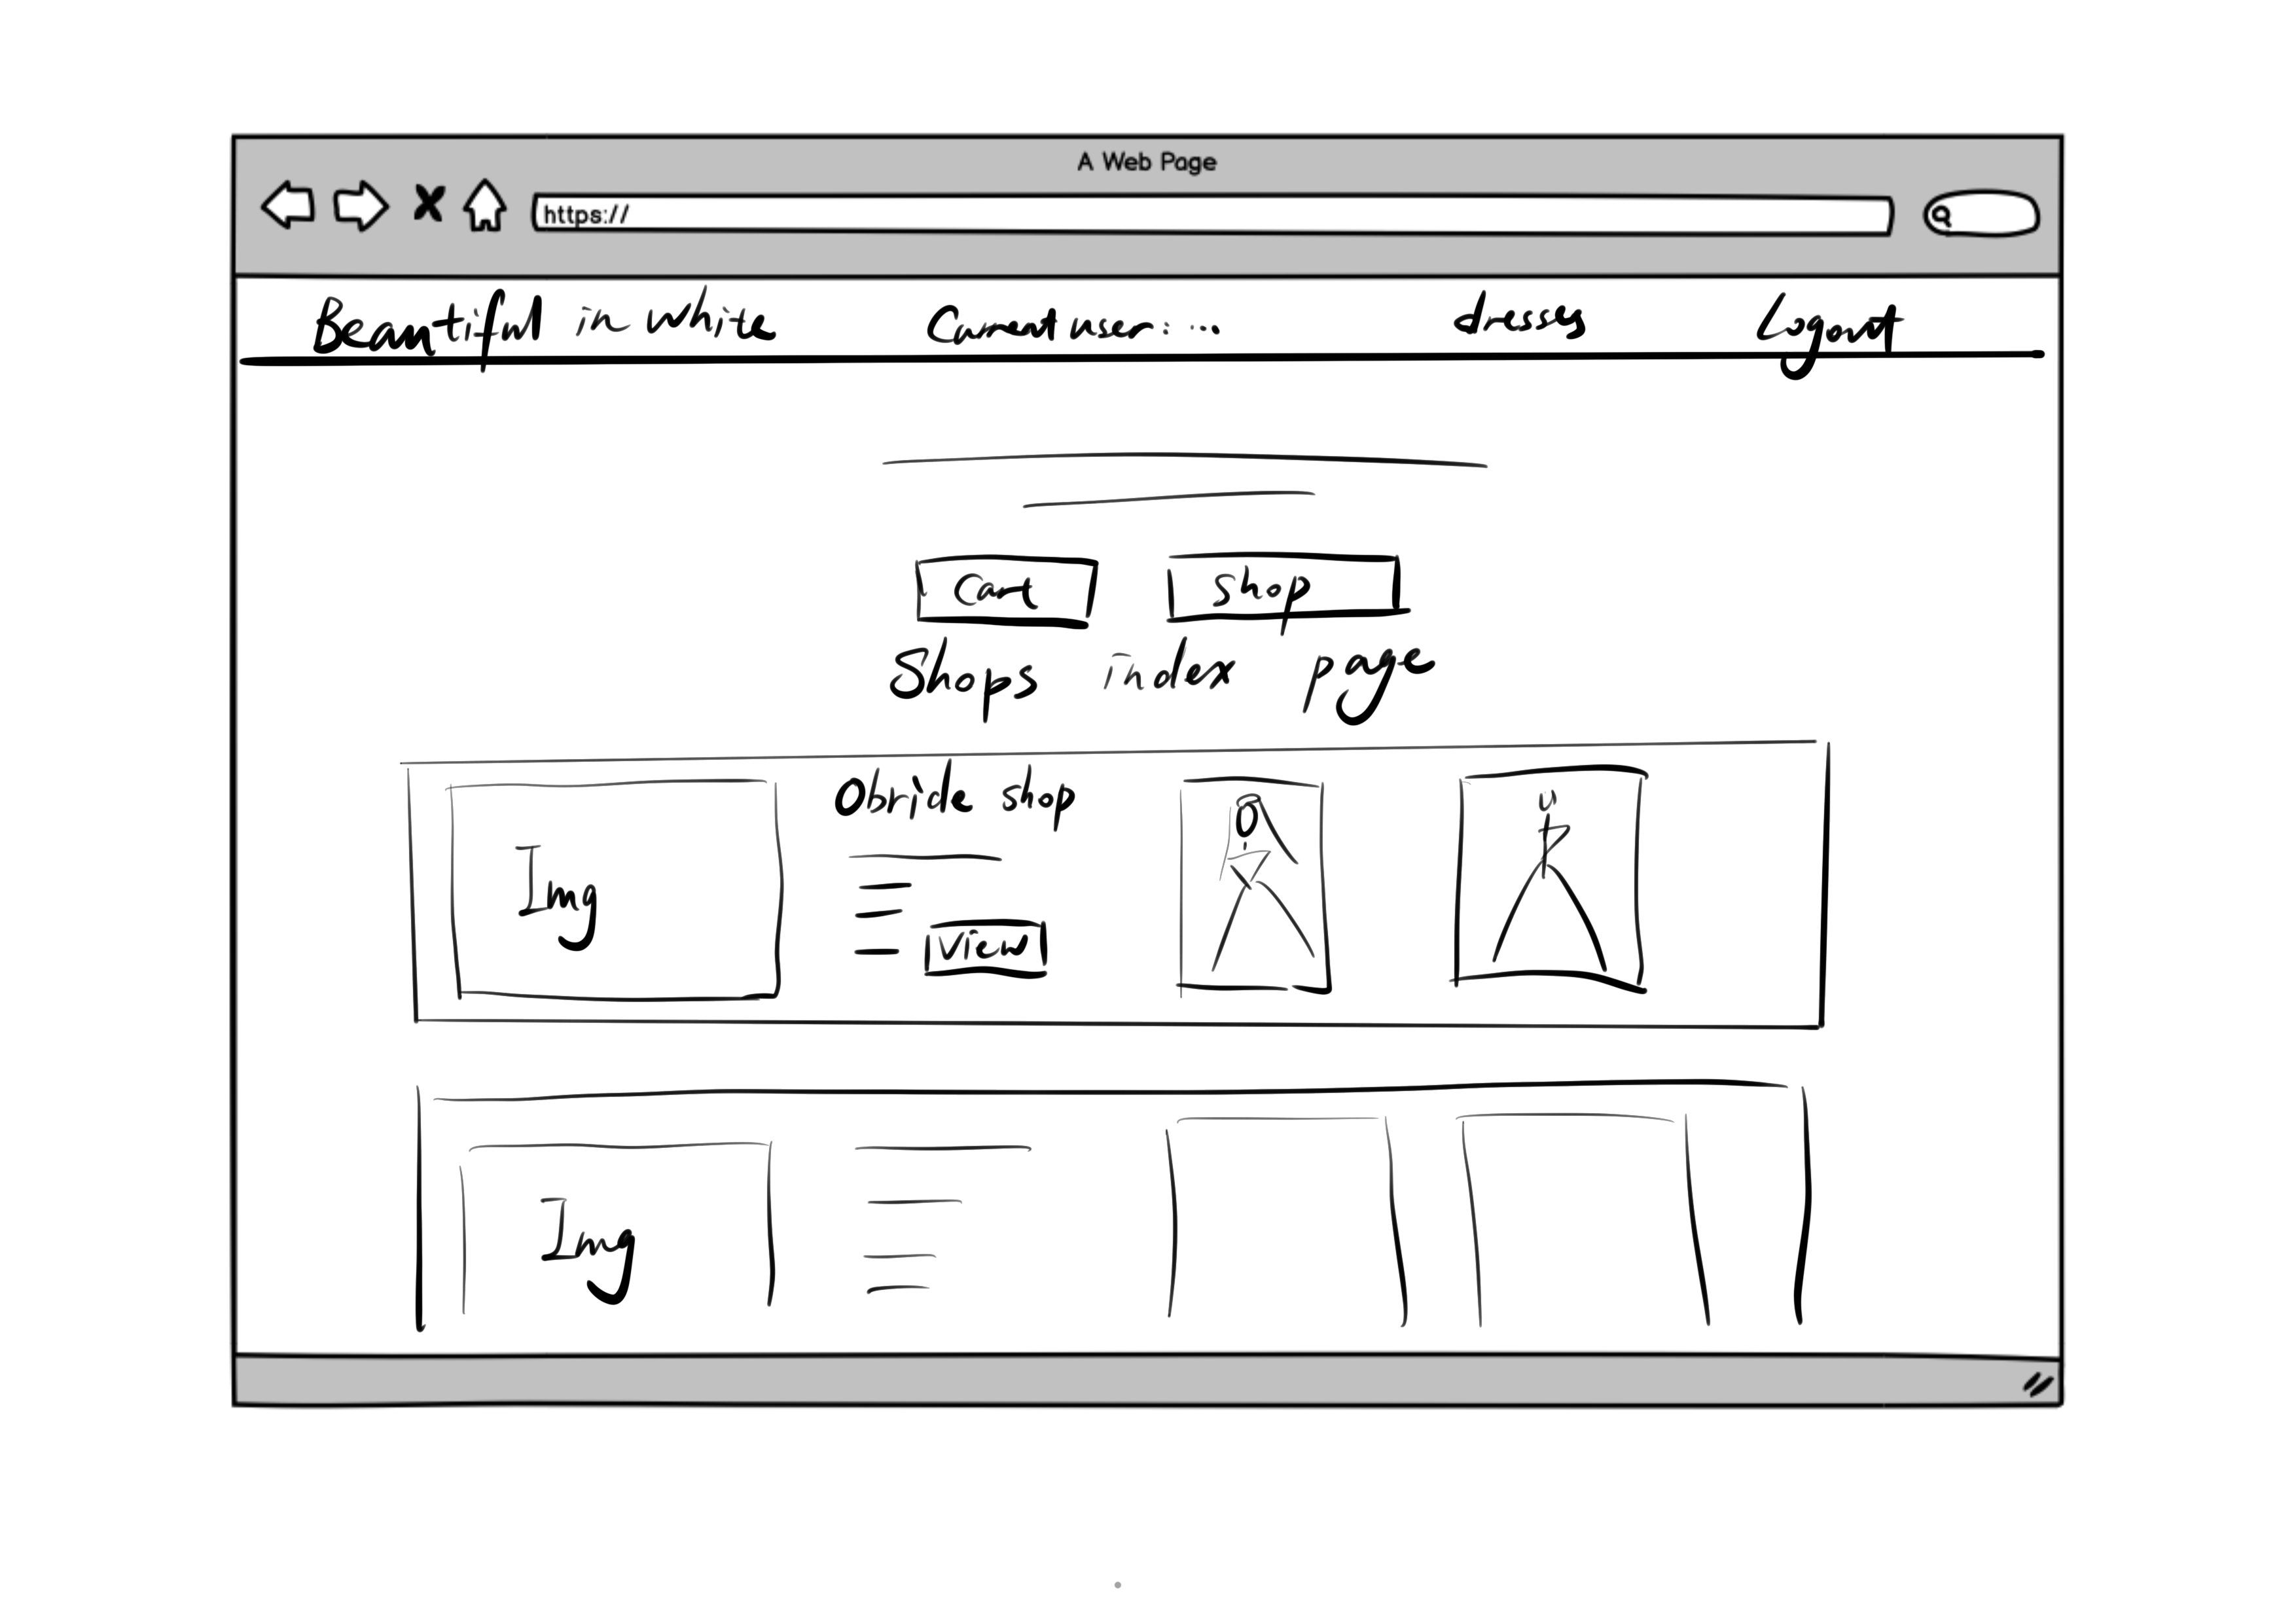 A Web Page
https://
Beautiful in white Current user: ... dresses Logout
Cart Shop
Shops index page
Obride shop
Img
View
Img